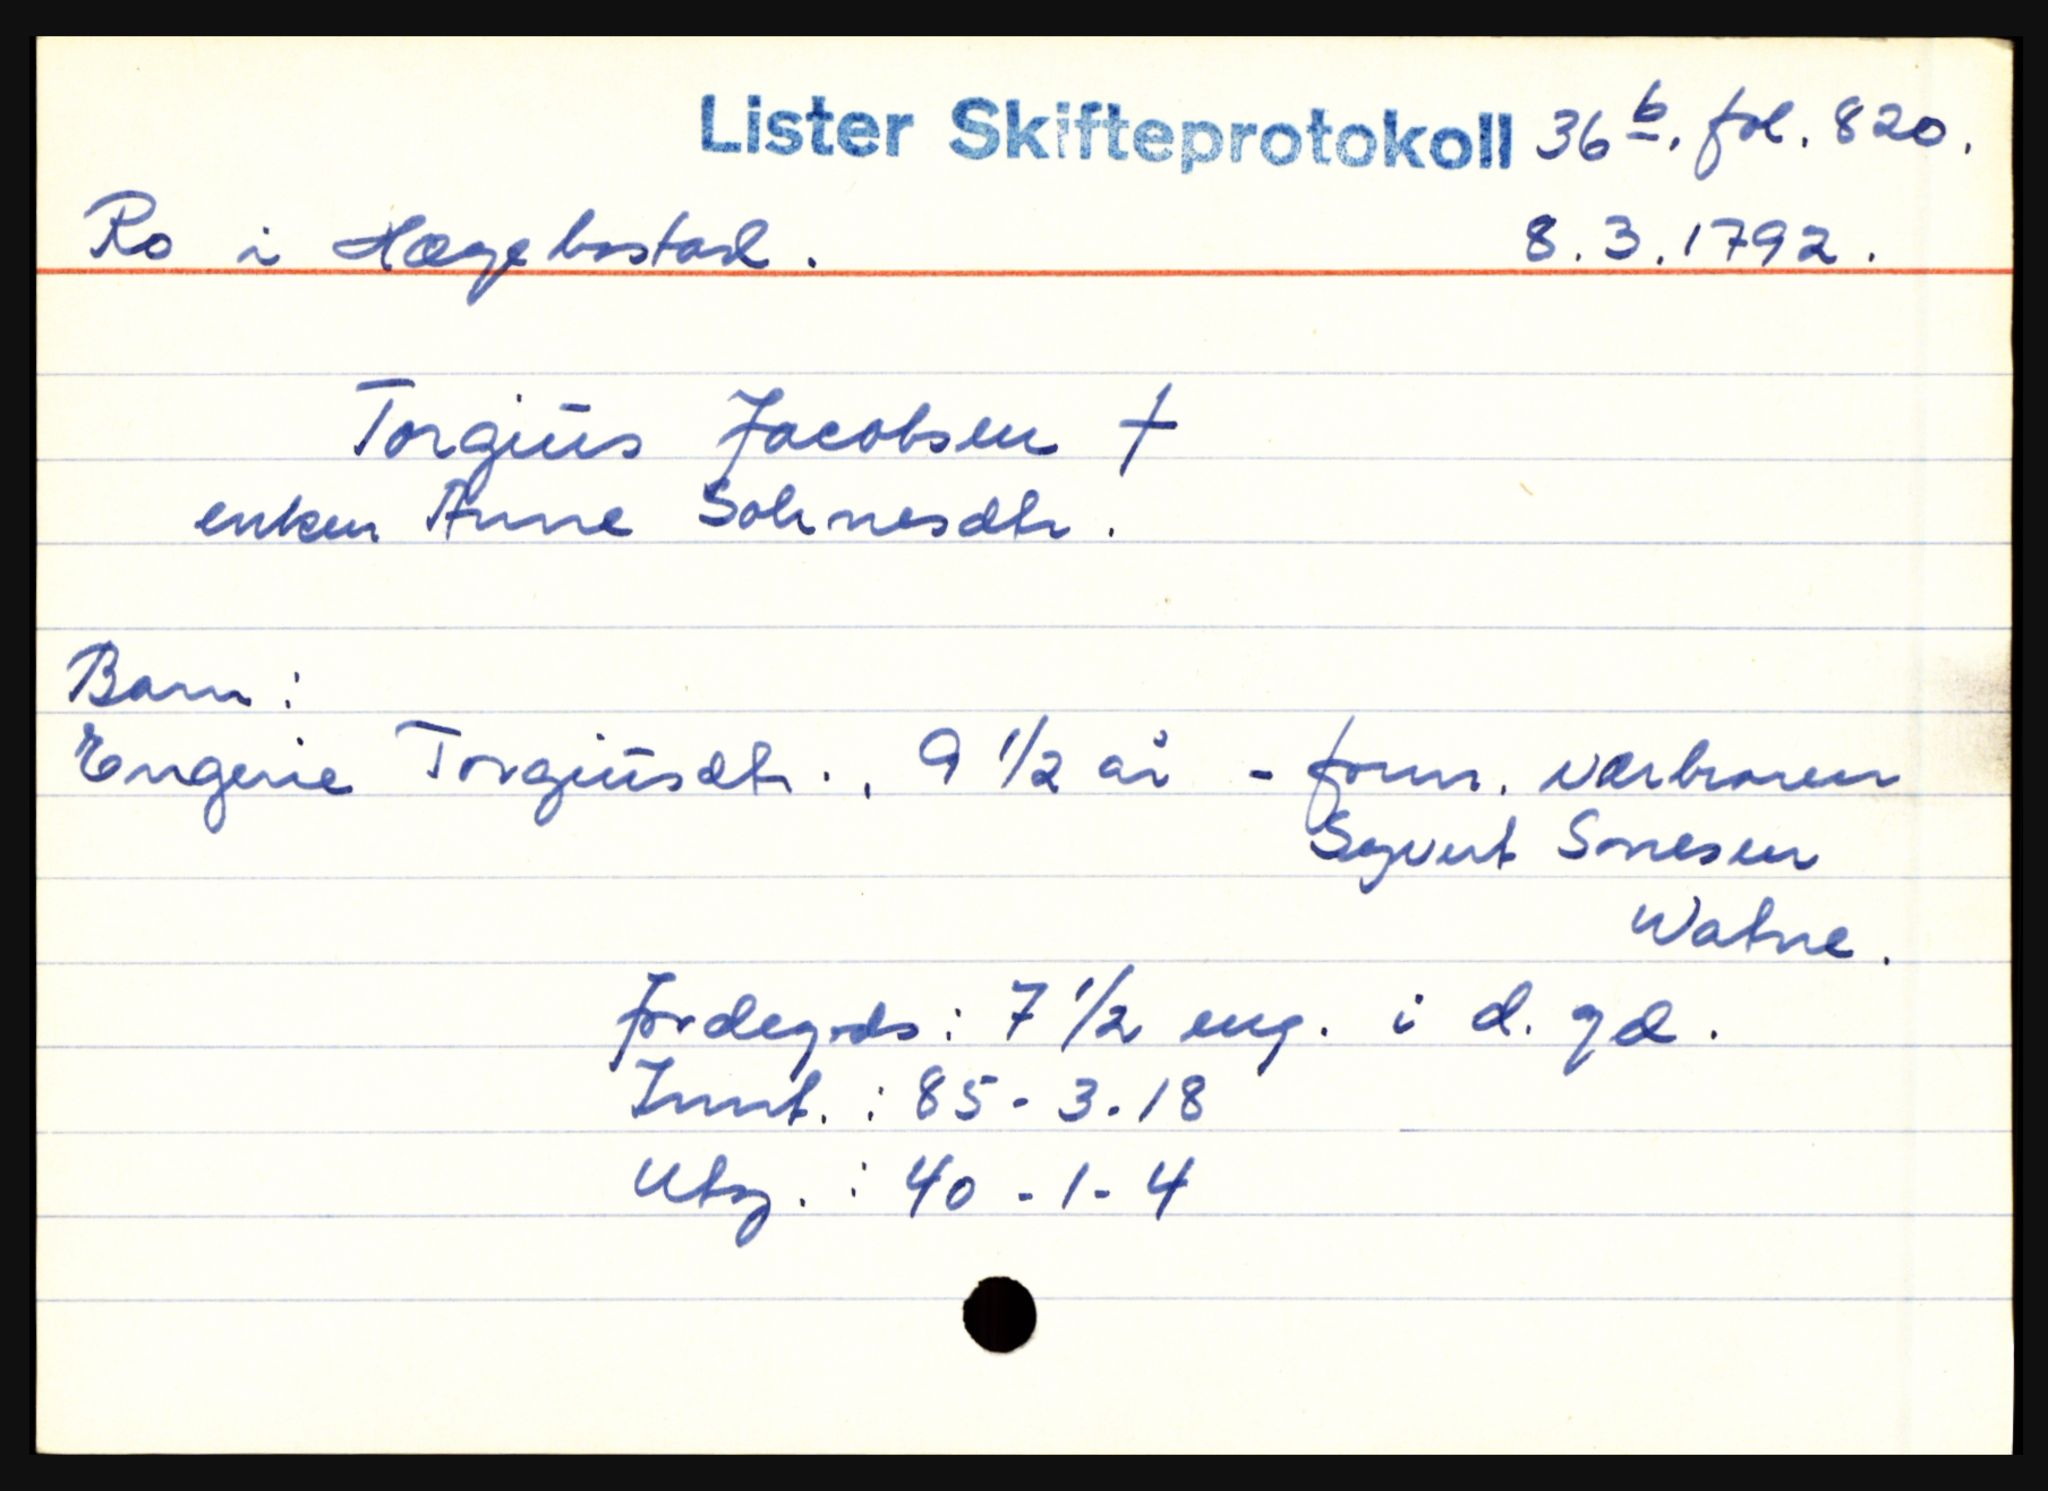 Lister Skifteprotokoll 36 b. fol. 820.
Ro i Hægebostad. 8.3.1792.
Torgiüs Jacobsen †
enken Anne Sohnesdtr.
Barn:
Engerie Torgiüsdtr., 9 1/2 år - form. værbroren
Segvert Sonesen
Watne.
Jordegds: 7 1/2 eng. i d. gd.
Innt.: 85-3-18
Utg.: 40-1-4